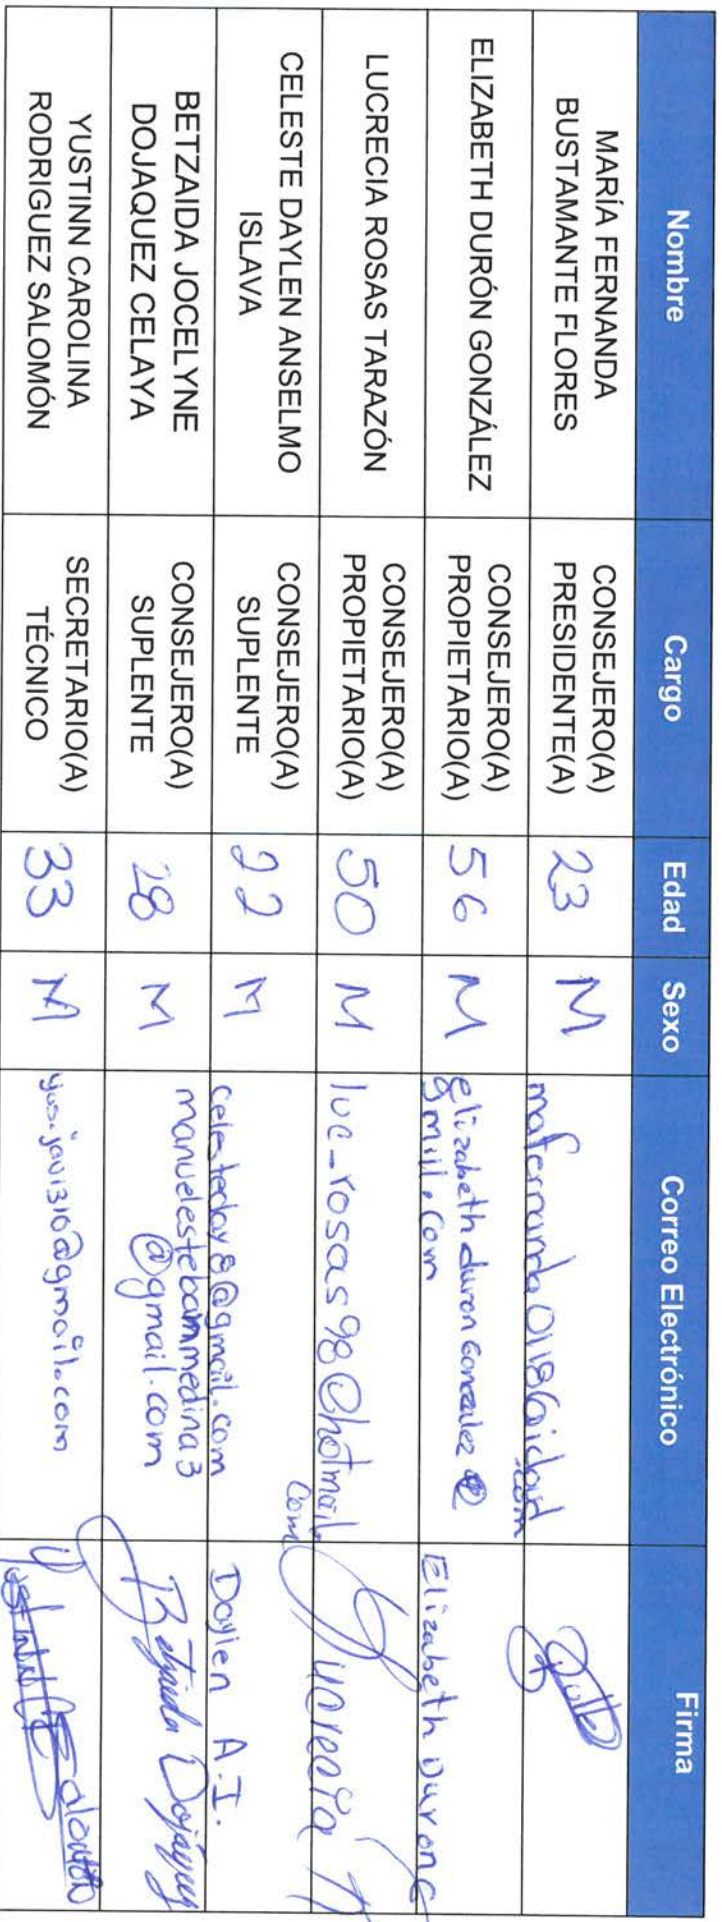 Nombre Cargo Edad Sexo Correo Electrónico Firma
MARÍA FERNANDA
BUSTAMANTE FLORES
CONSEJERO(A)
PRESIDENTE(A)
23
M
mafernanda0118@icloud
.com
ELIZABETH DURÓN GONZÁLEZ
CONSEJERO(A)
PROPIETARIO(A)
56
M
elizabeth duron Gonzalez @
gmill.com
Elizabeth Duron G
LUCRECIA ROSAS TARAZÓN
CONSEJERO(A)
PROPIETARIO(A)
50
M
luc_rosas98@hotmail.
com
Lucrecia
CELESTE DAYLEN ANSELMO
ISLAVA
CONSEJERO(A)
SUPLENTE
22
M
celesteday8@gmail.com
Daylen A.I.
BETZAIDA JOCELYNE
DOJAQUEZ CELAYA
CONSEJERO(A)
SUPLENTE
28
M
manuelestebammedina3
@gmail.com
Betzaida Dojaquez
YUSTINN CAROLINA
RODRIGUEZ SALOMÓN
SECRETARIO(A)
TÉCNICO
33
M
yus.javi1310@gmail.com